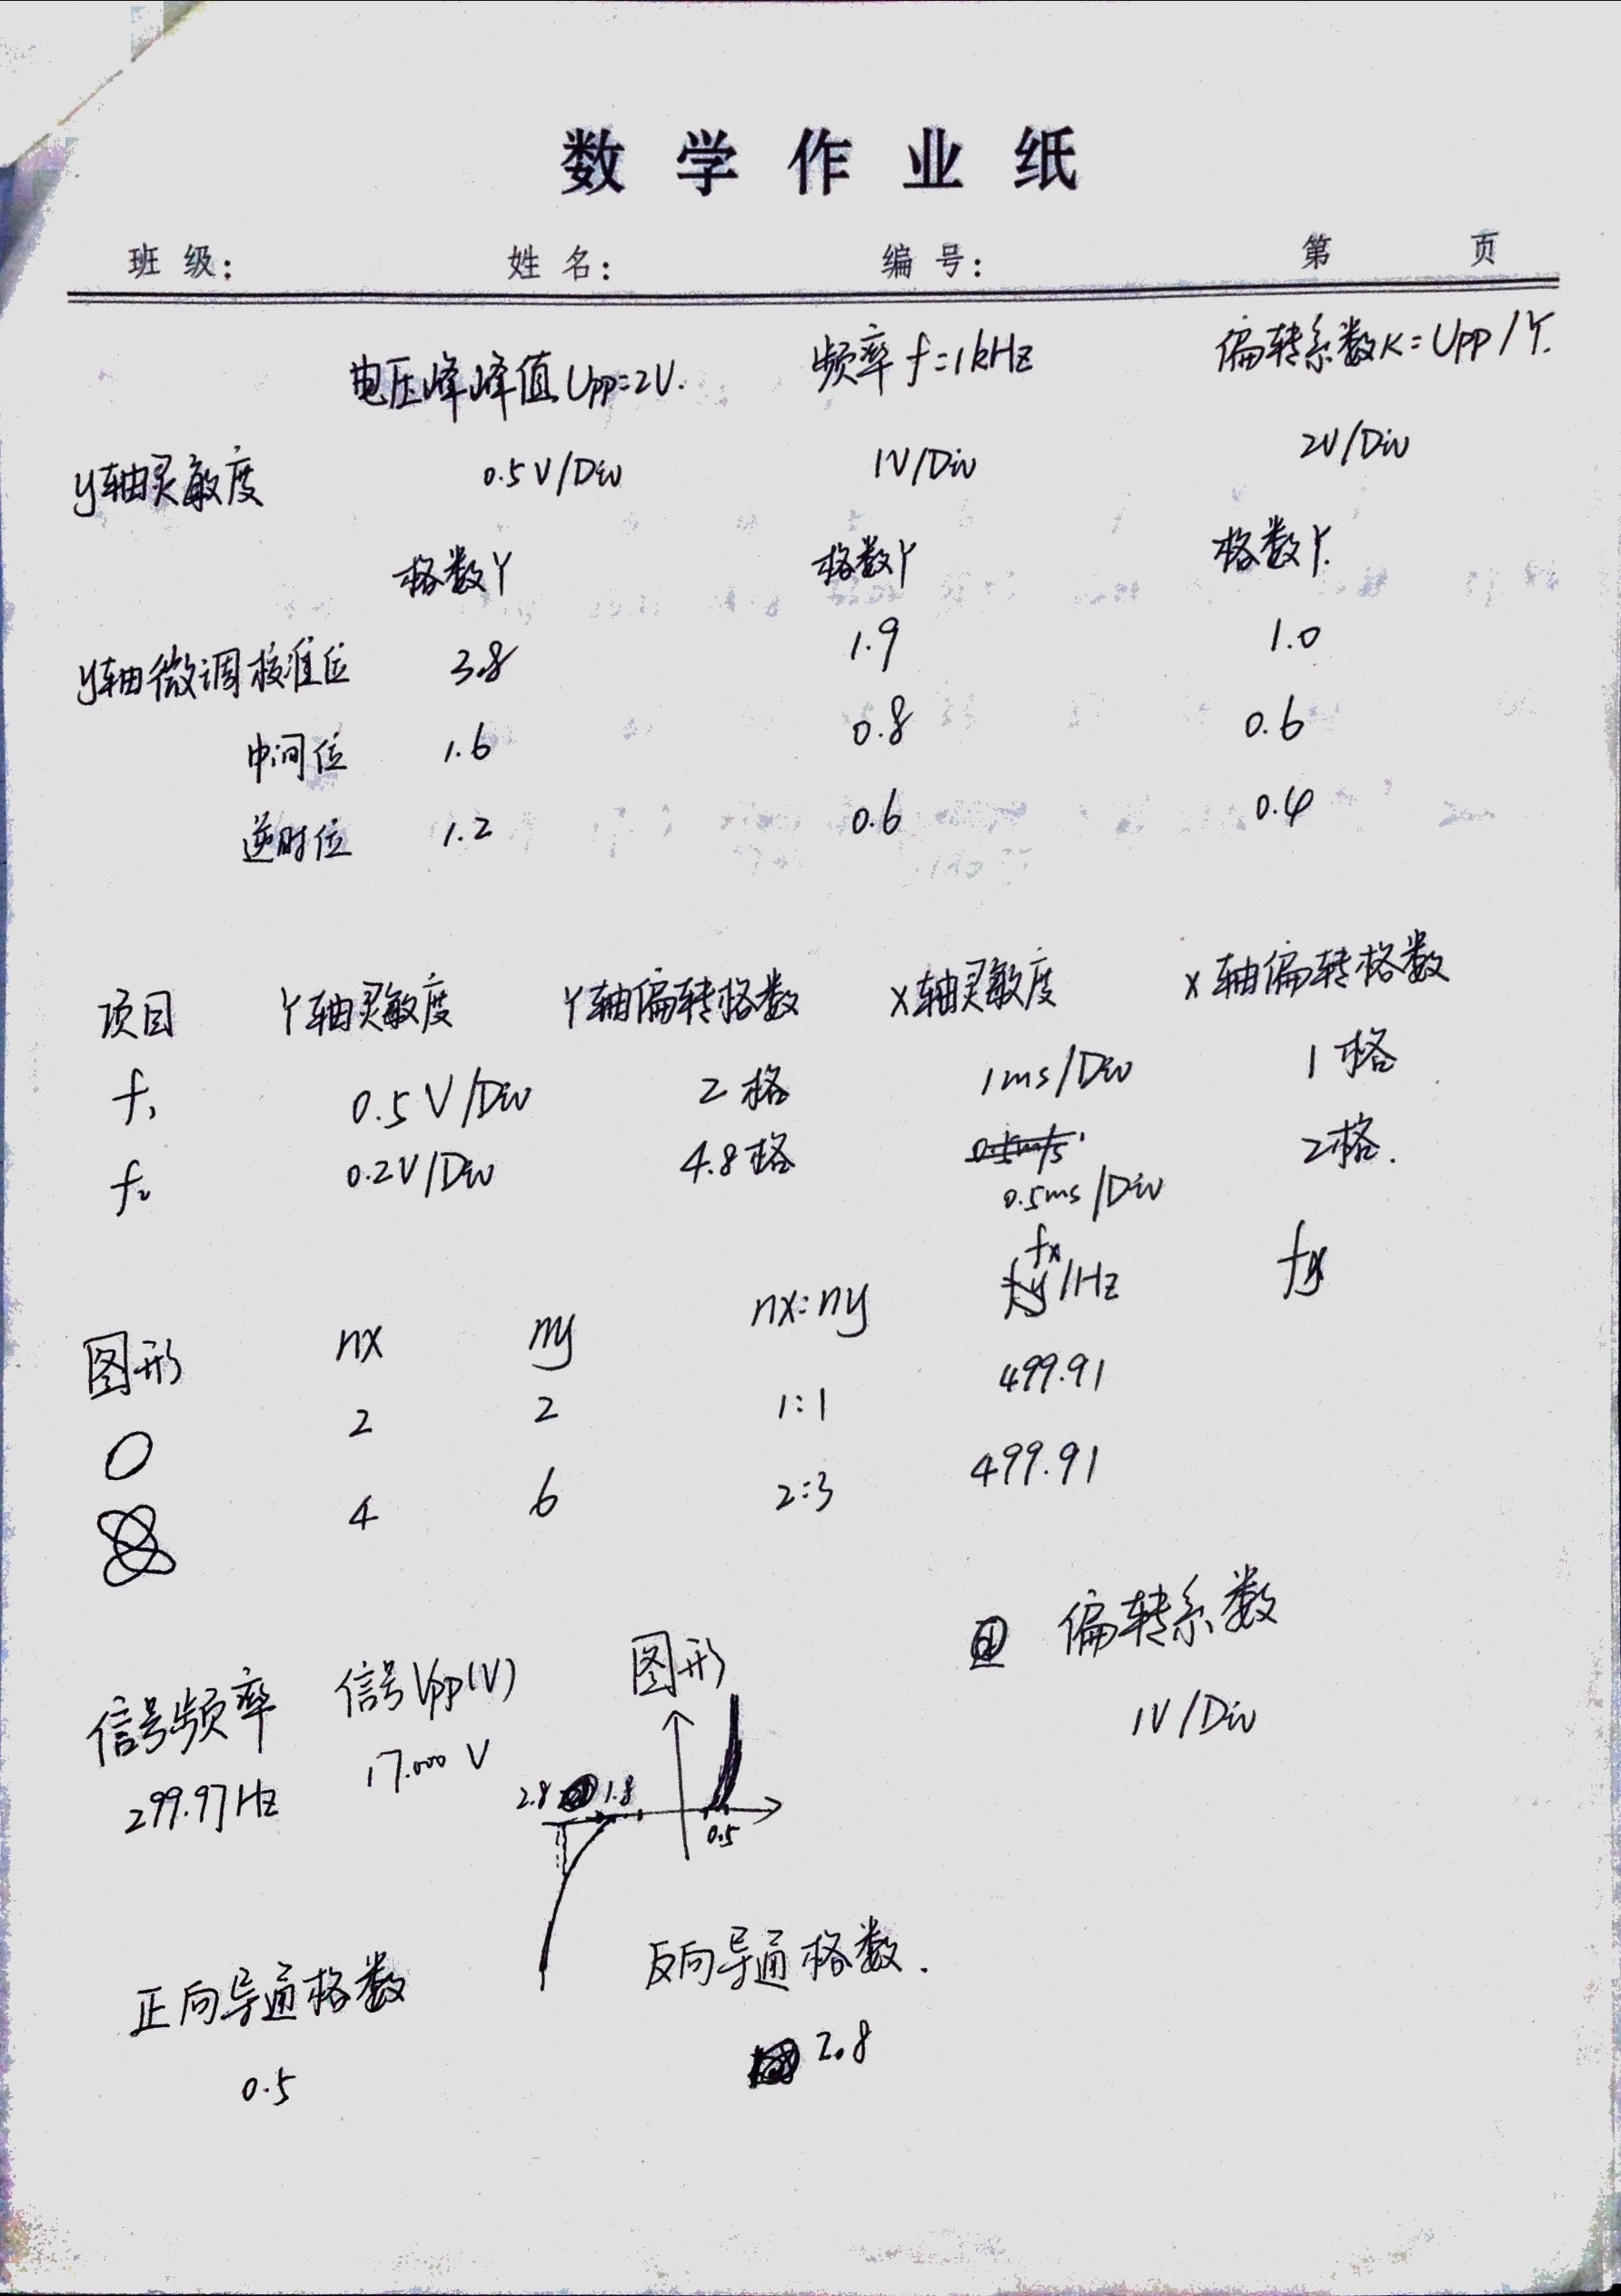 数学作业纸
班级： 姓名： 编号： 第 页
电压峰峰值Upp=2V. 频率f=1kHz 偏转系数K=Upp/Y.
y轴灵敏度 0.5V/Div 1V/Div 2V/Div
格数Y 格数Y 格数Y.
y轴微调校准位 3.8 1.9 1.0
中间位 1.6 0.8 0.6
逆时位 1.2 0.6 0.4
项目 Y轴灵敏度 Y轴偏转格数 X轴灵敏度 X轴偏转格数
f₁ 0.5V/Div 2格 1ms/Div 1格
f₂ 0.2V/Div 4.8格 0.5ms/Div 2格.
图形 nx ny nx:ny fx/Hz
2 2 1:1 499.91
4 6 2:3 499.91
信号频率 信号Upp(V) 图形 偏转系数
299.97Hz 17.000V 1V/Div
2.8 1.8
0.5
正向导通格数 反向导通格数.
0.5 2.8